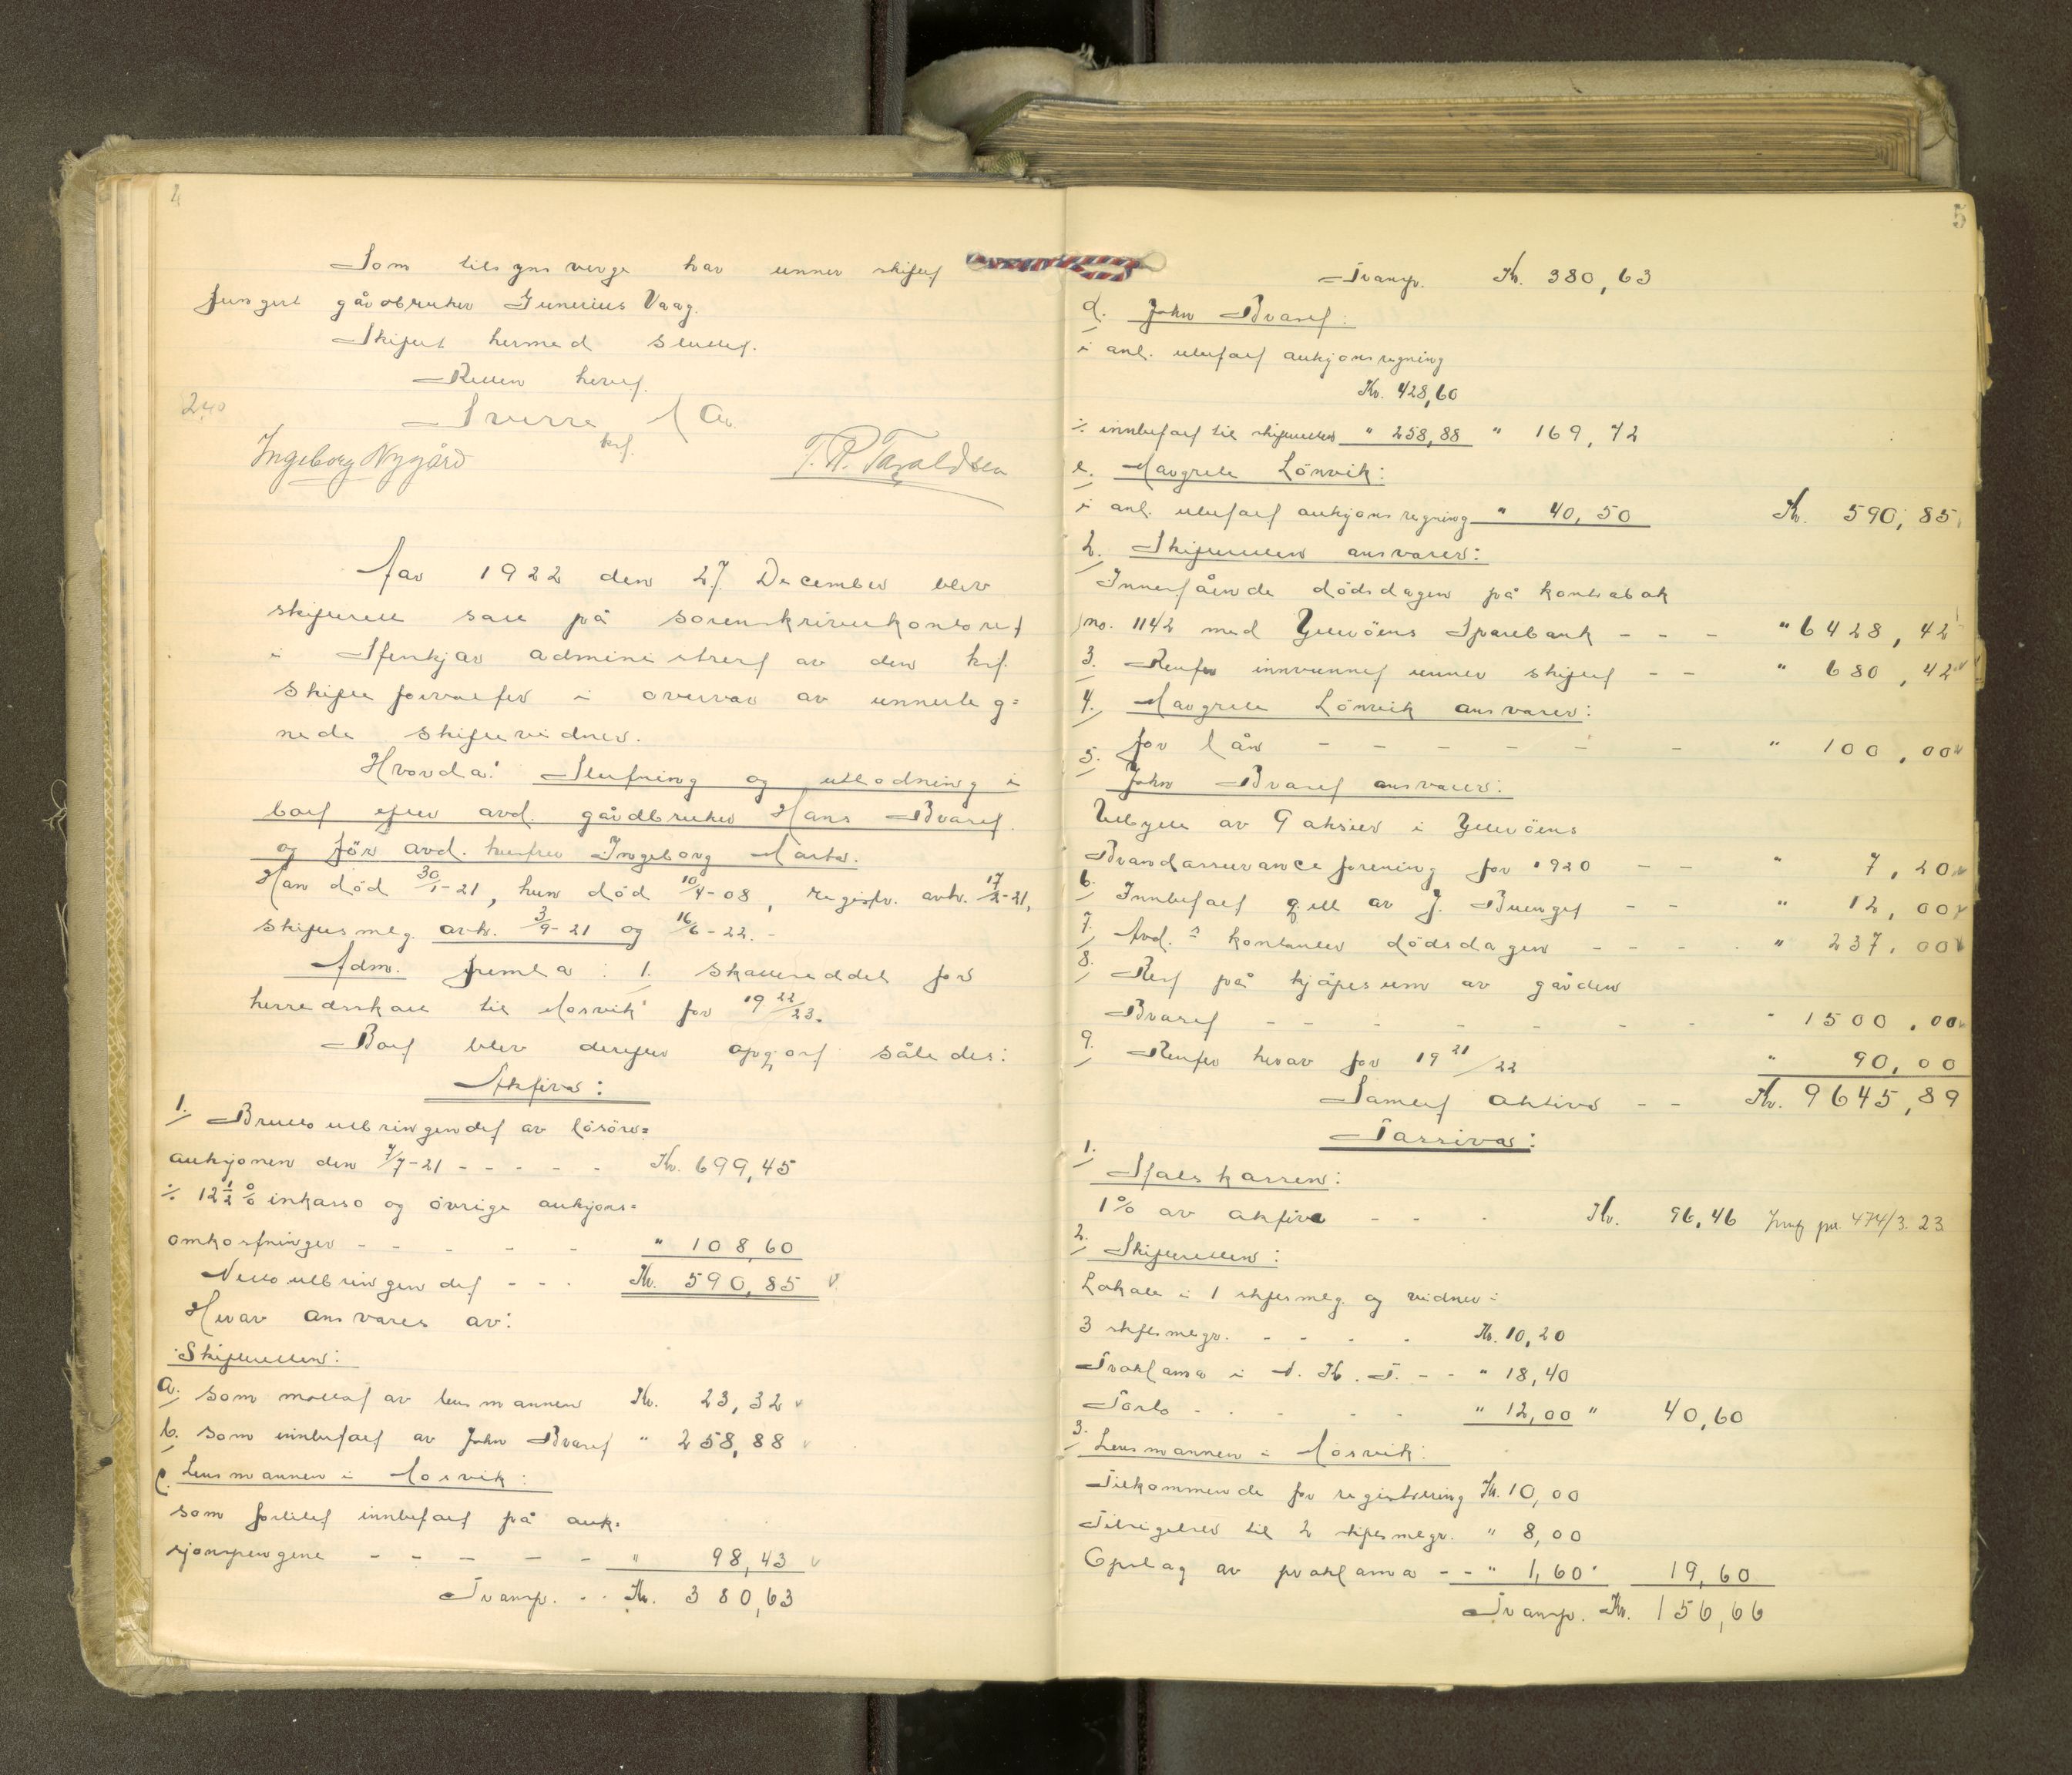 4
Som tilsynsverge har unner skiftet
fungert gårdbruker Gunerius Vaag.
Skiftet hermed sluttet.
Retten hevet.
240
Sverre
kst.
Ingeborg Nygård T. R. Taraldsen
Aar 1922 den 27. December blev
skifterett satt på sorenskriverkontoret
i Stenkjær administrert av den kst.
skifteforvalter i overvær av unnerteg=
nede skiftevidner.
Hvorda: Slutning og utlodning i
boet efter avd. gårdbruker Hans Bvaret
og før avd. hustru Ingeborg Marta.
Han död 30/1-21, hun död 10/4-08, registr. avh. 17/2-21,
skiftesmlg. avh. 3/9-21 og 16/6-22.-
Adm. fremla: 1. skatteseddel for
herredsskatt til Mosvik for 19 22/23.
Boet blev derefter opgjort således:
Aktiva:
1. Brutto utbringendet av lösöre=
auksjonen den 7/7-21 - - - - - Kr. 699,45
÷ 12 1/2 % inkasso og övrige auksjons=
omkostninger - - - - - " 108,60
Netto utbringendet - - - Kr. 590,85
Herav ansvares av:
Skifteretten:
a. som mottat av lensmannen Kr. 23,32
b. som innbetalt av John Bvaret " 258,88
c. Lensmannen i Mosvik:
som fortlet innbetalt på auk=
sjonspengene - - - - - " 98,43
Transp. - - Kr. 380,63
5
Transp. Kr. 380,63
d. John Bvaret:
i anl. utestaaende auksjonsregning
Kr. 428,60
÷ innbetalt til skifteretten " 258,88 " 169,72
e. Margrete Lönvik:
i anl. auksjonsregning " 40,50 Kr. 590,85
2. Skifteretten ansvarer:
Innestående dödsdagen på kontrabok
no. 1142 med Ytteröens Sparebank - - - " 6428,42
3. Renter innvunnet unner skiftet - - " 680,42
4. Margrete Lönvik ansvarer:
for lån - - - - - - " 100,00
5. John Bvaret ansvarer:
Utbytte av 9 aksier i Ytteröens
Brandassurance forening for 1920 - - " 7,20
6. Innbetalt gjeld av J. - - " 12,00
7. Avd.s kontanter dödsdagen - - - - " 237,00
8. Rest på kjöpesum av gården
Bvaret - - - - - - - - " 1500,00
9. Renter herav for 19 21/22 " 90,00
Samlet aktiva - - Kr. 9645,89
Passiva:
1. Statskassen:
1% av aktiva - - - Kr. 96,46 474/3. 23
2. Skifteretten:
Lokale i 1 skftsmlg. og vidner i
3 skftsmlgr. - - - - Kr. 10,20
Proklama i N. K. T. - - " 18,40
Porto - - - - - " 12,00 " 40,60
3. Lensmannen i Mosvik:
Tilkommende for registrering Kr. 10,00
Tilsigelser til 2 skftsmlgr. " 8,00
Opslag av proklama - - " 1,60 " 19,60
Transp. Kr. 156,66